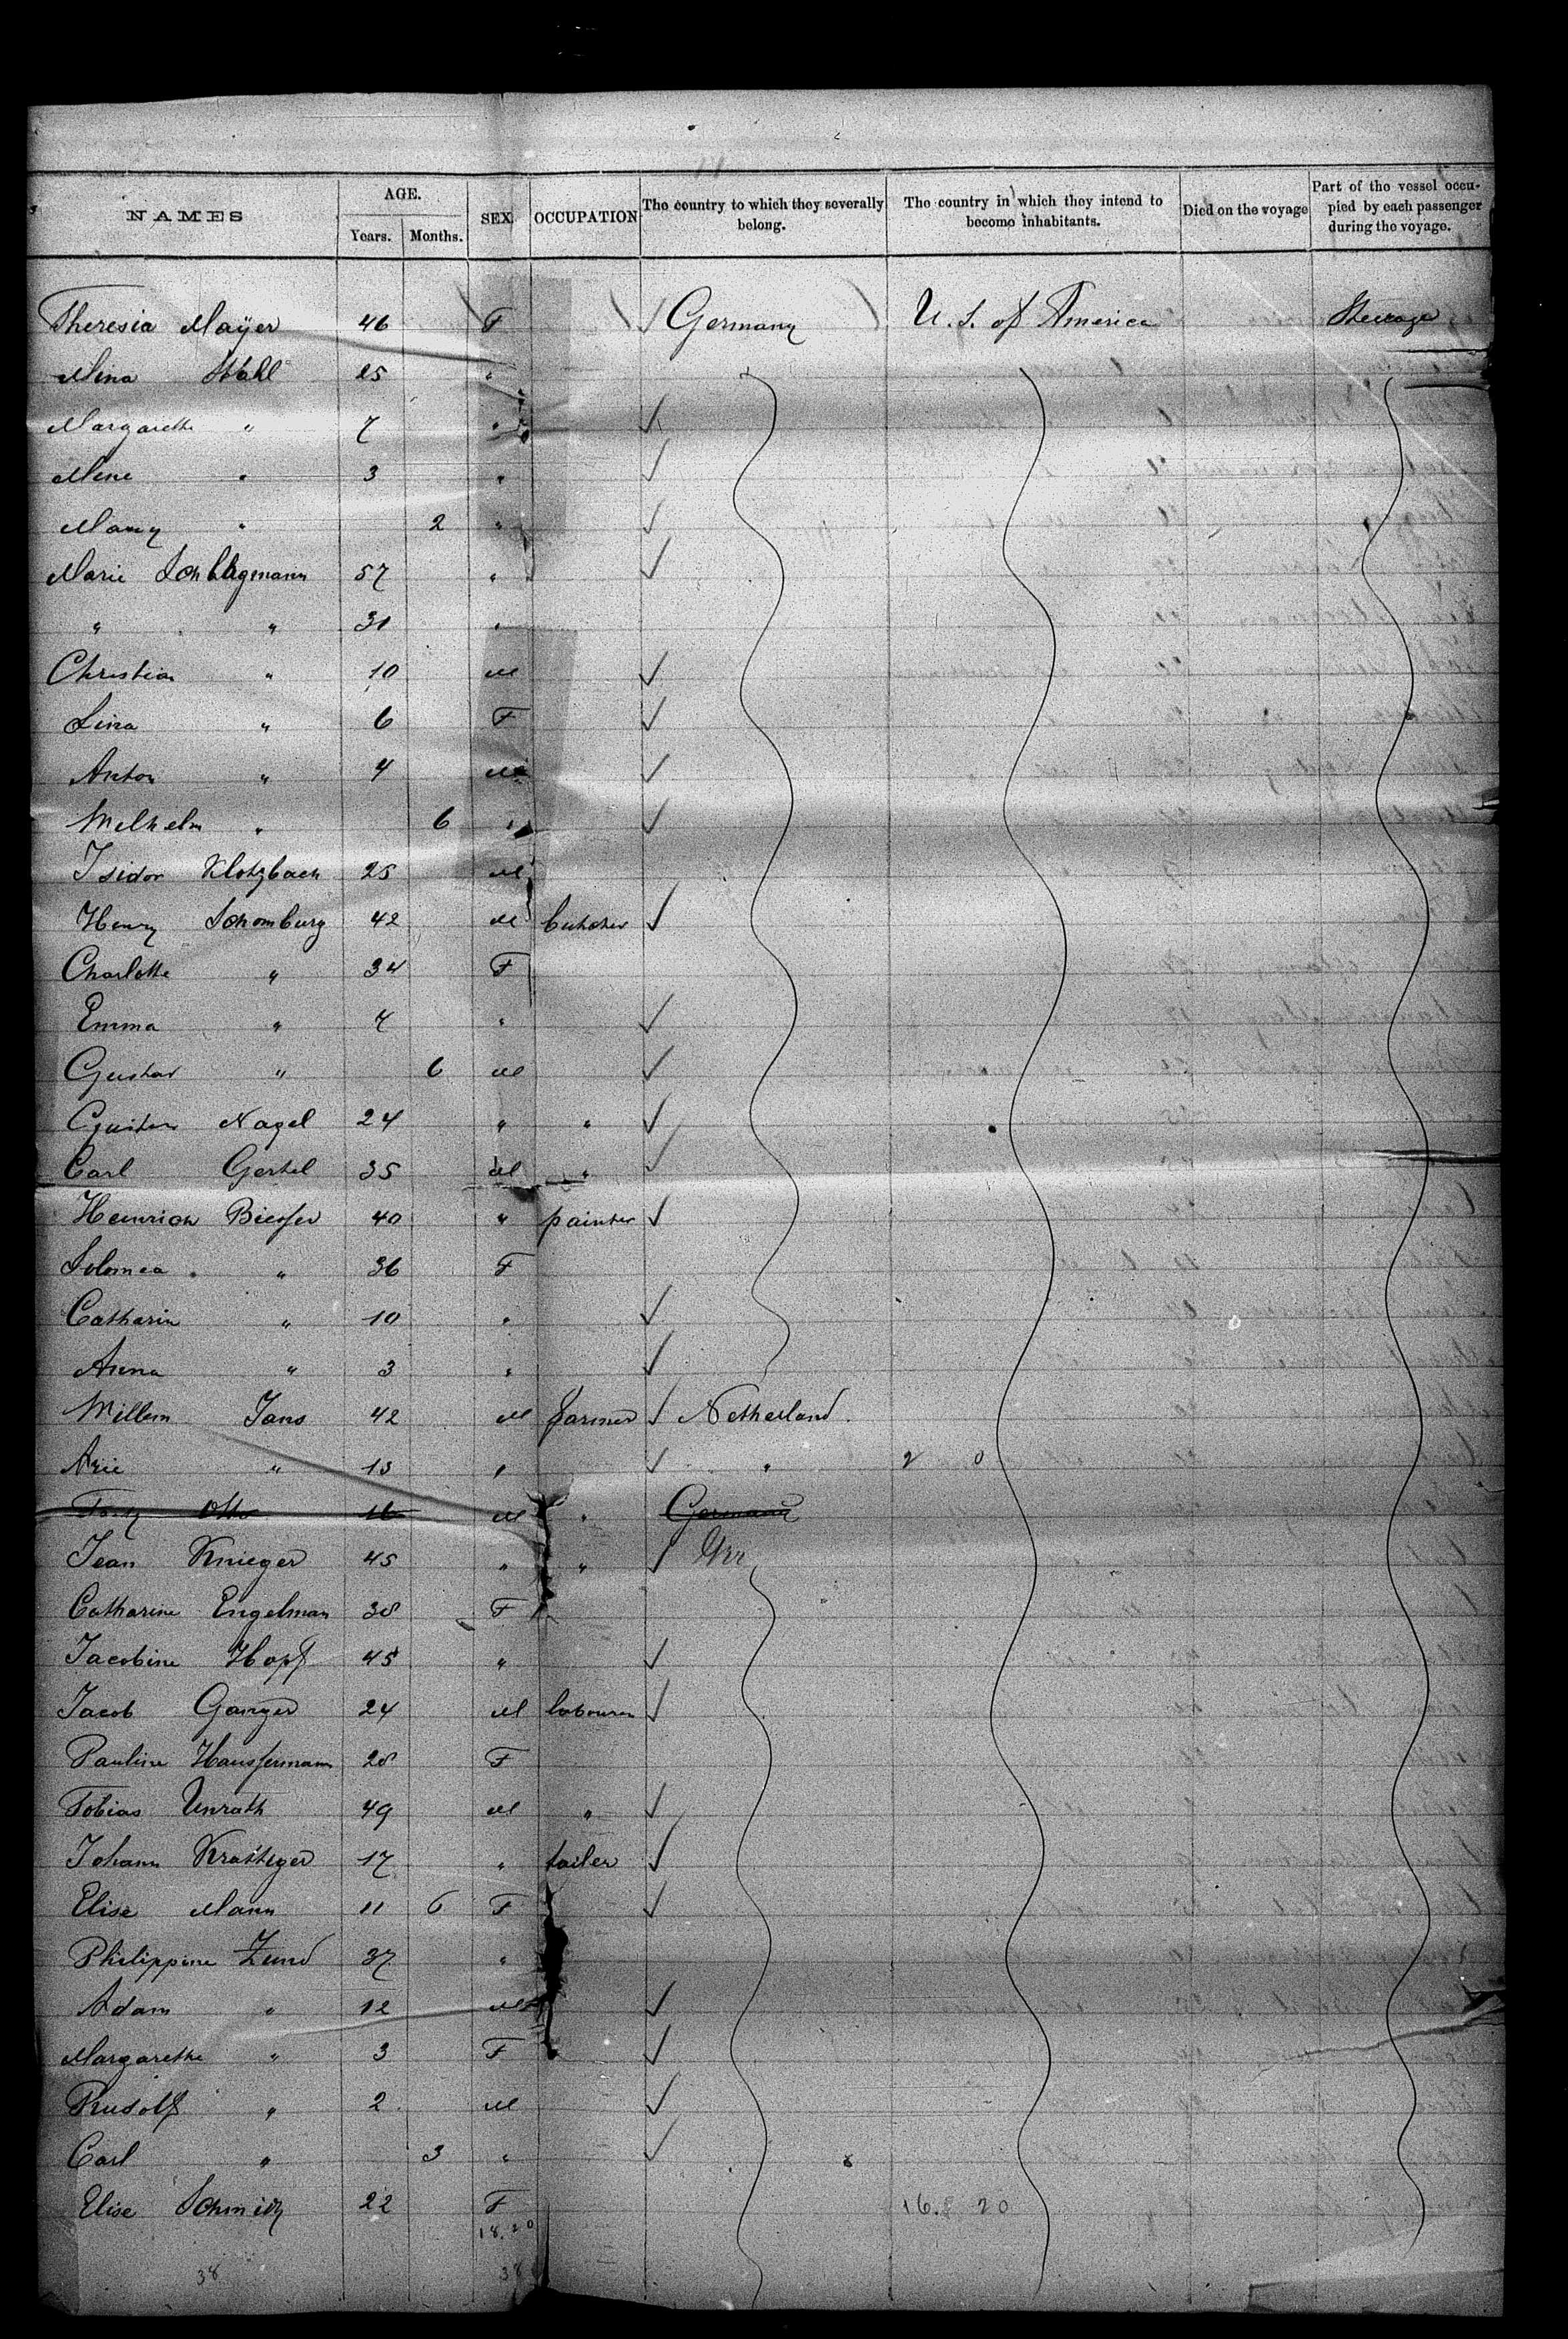 NAMES AGE. Years. Months. SEX. OCCUPATION The country to which they severally belong. The country in which they intend to become inhabitants. Died on the voyage Part of the vessel occupied by each passenger during the voyage.
Theresia Mayer 46 F Germany U. S. of America Steerage
Mina Stahl 25 "
Margarethe " 7 "
Mine " 3 "
Mary " 2 "
Marie 57 "
" " 31 "
Christian " 10 M
Lina " 6 F
Anton " 4 M
Wilhelm " 6 "
Isidor Klotzbach 25 M
Henry Schomburg 42 M butcher
Charlotte " 34 F
Emma " 7 "
Gustav " 6 M
Nagel 24 " "
Carl Gertel 35 M "
Heinrich 40 " painter
Solomea " 36 F
Catharin " 10 "
Anna " 3 "
Willem Jans 42 M farmer Netherland.
Arie " 13 " "
Otto 16 M " Germany
Jean Krieger 45 " "
Catharine Engelman 38 F
Jacobine Hopf 45 "
Jacob 24 M labourer
Pauline Haussermann 28 F
Tobias Unrath 49 M "
Johann Krattiger 17 " tailer
Elise Mann 11 6 F
Philippine Zund 37 "
Adam " 12 M
Margarethe " 3 F
Rudolf " 2 M
Carl " 3 "
Elise 22 F 16. 20
18.20
38 38